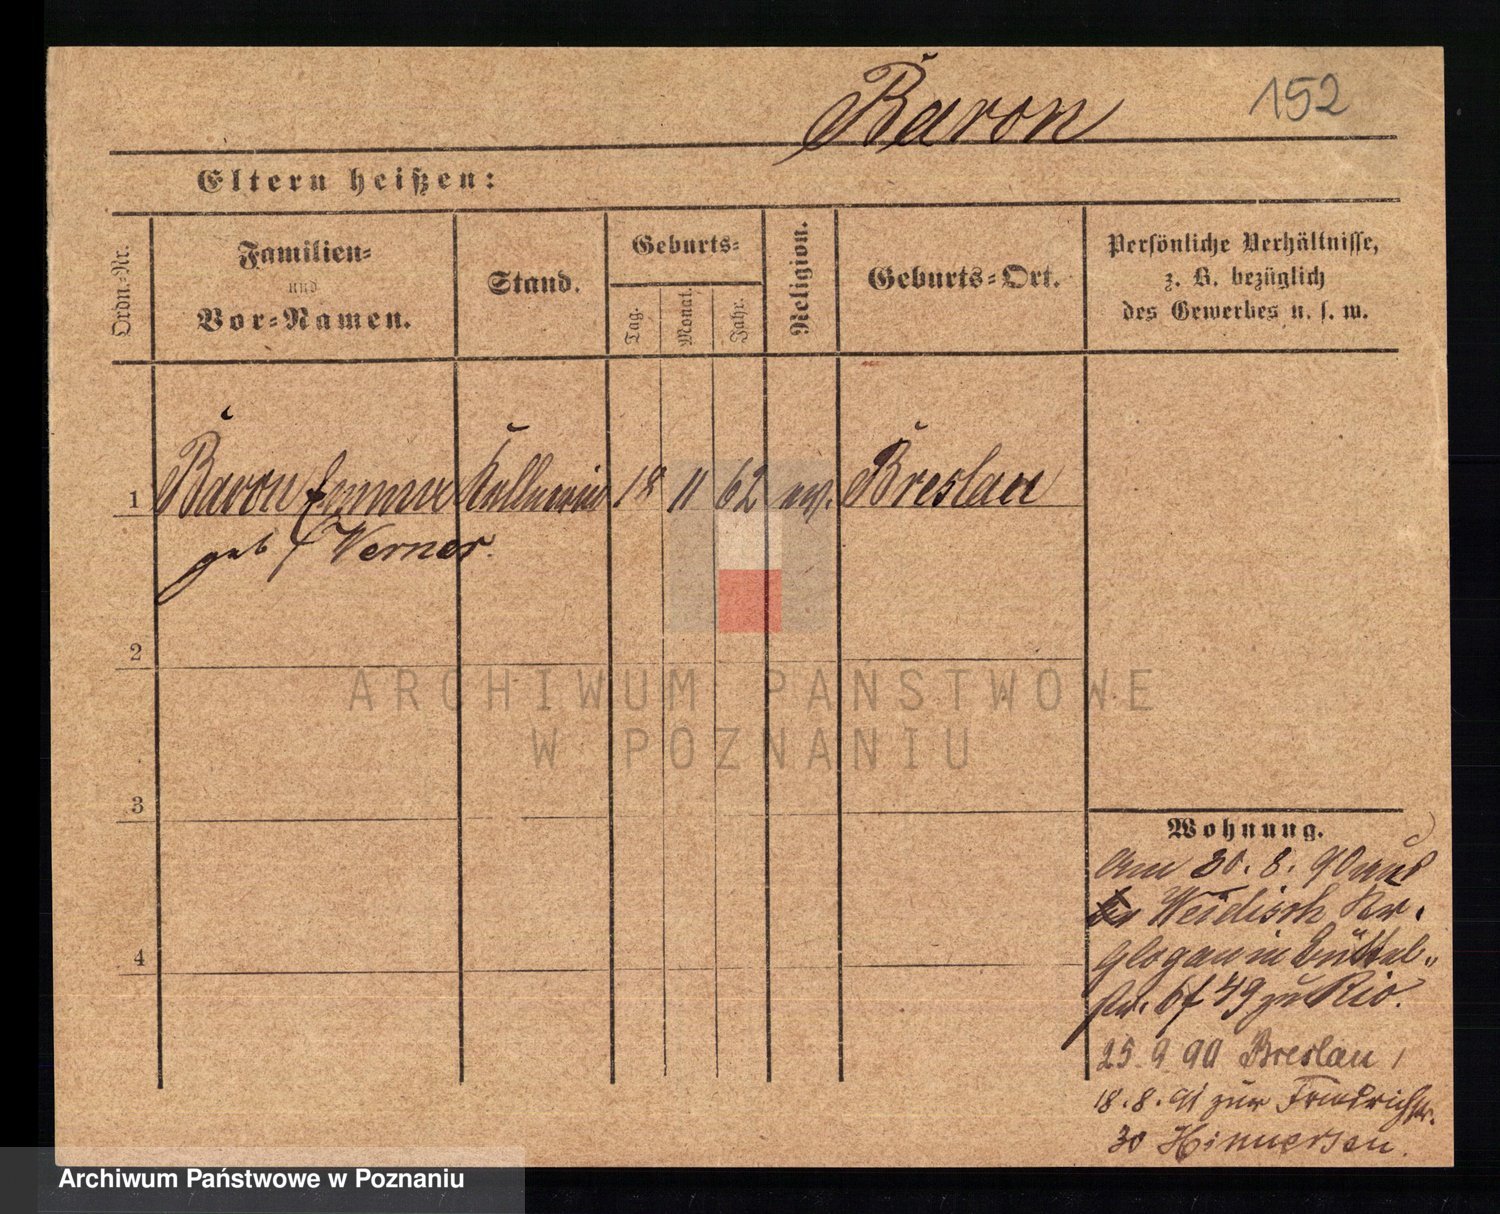 Baron 152
Eltern heißen:
Ordn.-Nr. Familien- und Vor-Namen. Stand. Geburts- Tag. Monat. Jahr. Religion. Geburts-Ort. Persönliche Verhältnisse, z. B. bezüglich des Gewerbes u. s. w.
1 Baron Emma Kellnerin 18 11 62 ev. Breslau
geb Werner.
2
3
4
Wohnung.
Am 30. 8. 90 aus
Weidisch Kr.
Glogau in Büttel-
str. 6 f 49 zu Rio.
25. 9 90 Breslau
18. 8. 91 zur Friedrichstr.
30 Hinnersen.
ARCHIWUM PAŃSTWOWE
W POZNANIU
Archiwum Państwowe w Poznaniu